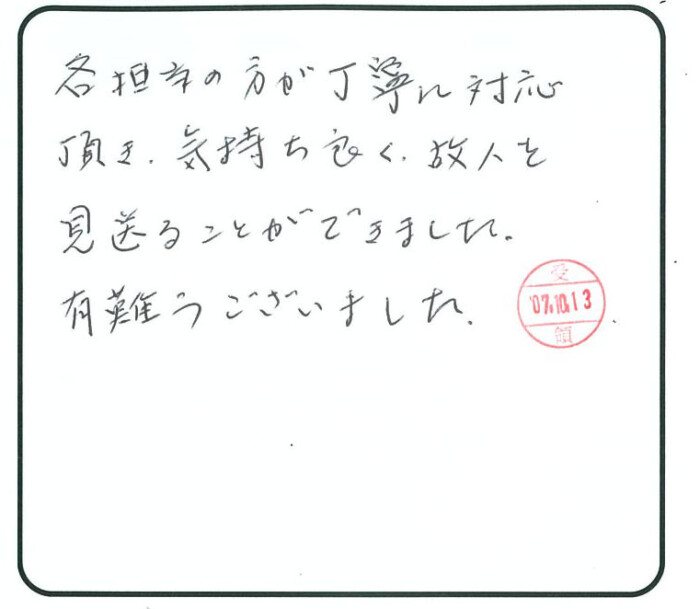 各担当の方が丁寧に対応
頂き、気持ち良く、故人を
見送ることができました。
有難うございました。
受
'07.10.13
領